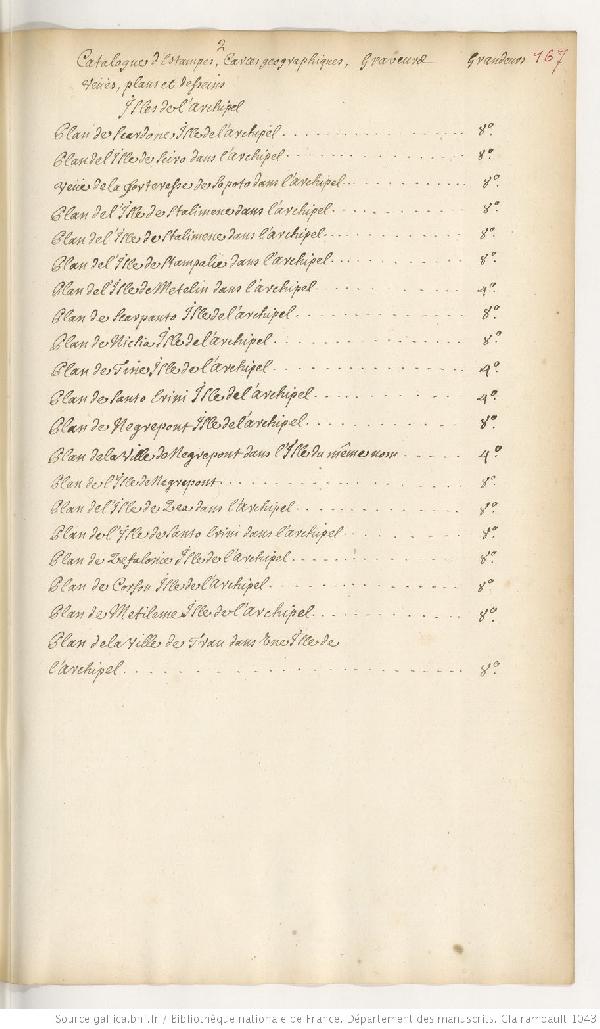 2
Catalogue d'Estampes, Cartes geographiques, Graveure Grandeurs 167
Veües, plans et desseins
Isles de l'Archipel
Plan de Scardone Isle de l'archipel 8º.
Plan de l'Isle de Sciro dans l'archipel 8º.
Veüe de la forteresse de Sopoto dans l'archipel 8º.
Plan de l'Isle de Stalimene dans l'archipel 8º.
Plan de l'Isle de Stalimene dans l'archipel 8º.
Plan de l'Isle de Stampalie dans l'archipel 8º.
Plan de l'Isle de Metelin dans l'archipel 4º.
Plan de Scarpanto Isle de l'archipel 8º.
Plan de Nichia Isle de l'archipel 8º.
Plan de Tine Isle de l'archipel 4º.
Plan de Santo Erini Isle de l'archipel 4º.
Plan de Negrepont Isle de l'archipel 8º.
Plan de la Ville de Negrepont dans l'Isle du même nom 4º
Plan de l'Isle de Negrepont 8º.
Plan de l'Isle de Zea dans l'archipel 8º.
Plan de l'Isle de Santo Erini dans l'archipel 8º.
Plan de Zefalonie Isle de l'archipel 8º.
Plan de Corfou Isle de l'archipel 8º.
Plan de Metileme Isle de l'Archipel 8º.
Plan de la Ville de Trau dans Une Isle de
l'archipel 8º.
Source gallica.bnf.fr / Bibliothèque nationale de France. Département des manuscrits. Clairambault 1043